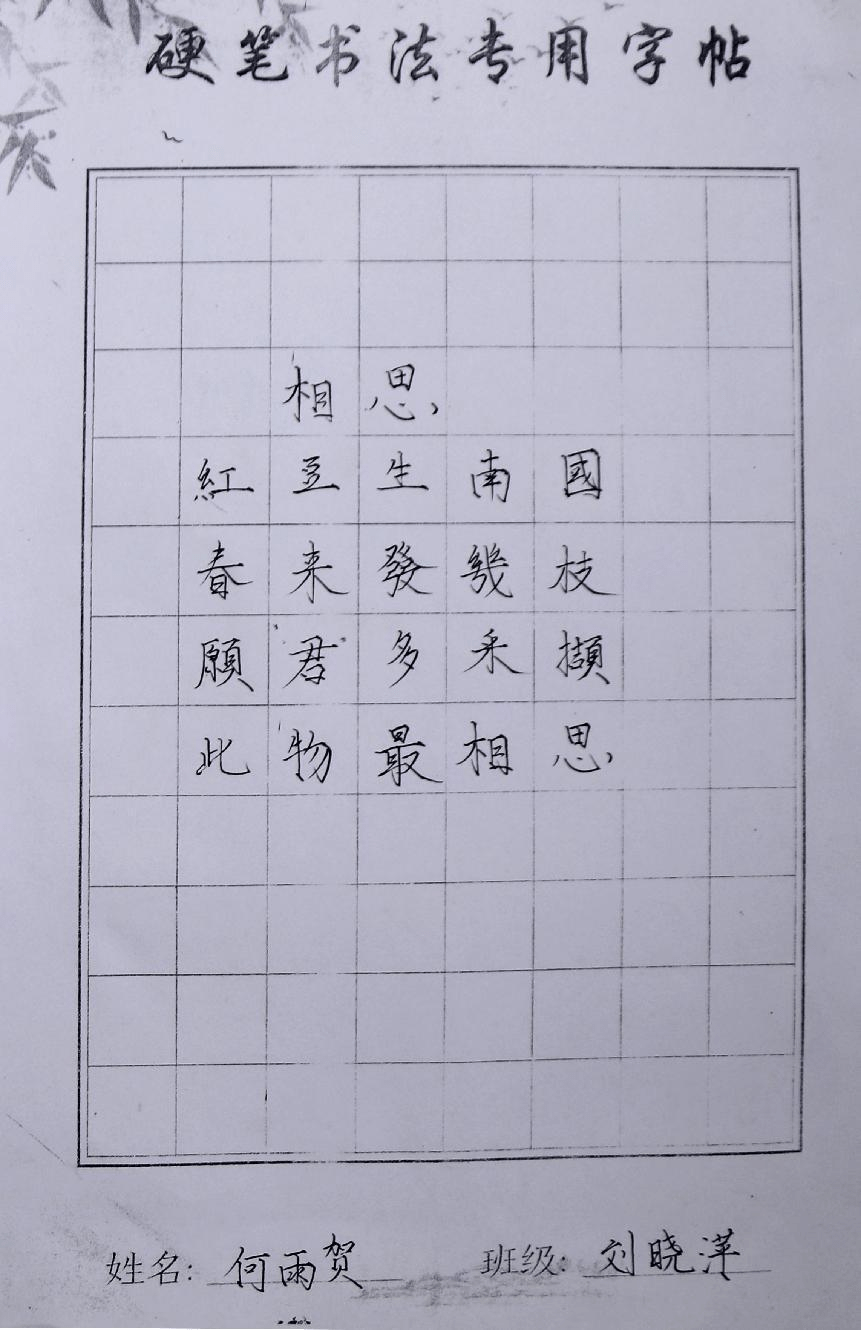 硬笔书法专用字帖
相思
紅豆生南國
春来發幾枝
願君多采擷
此物最相思
姓名: 何雨贺 班级: 刘晓萍